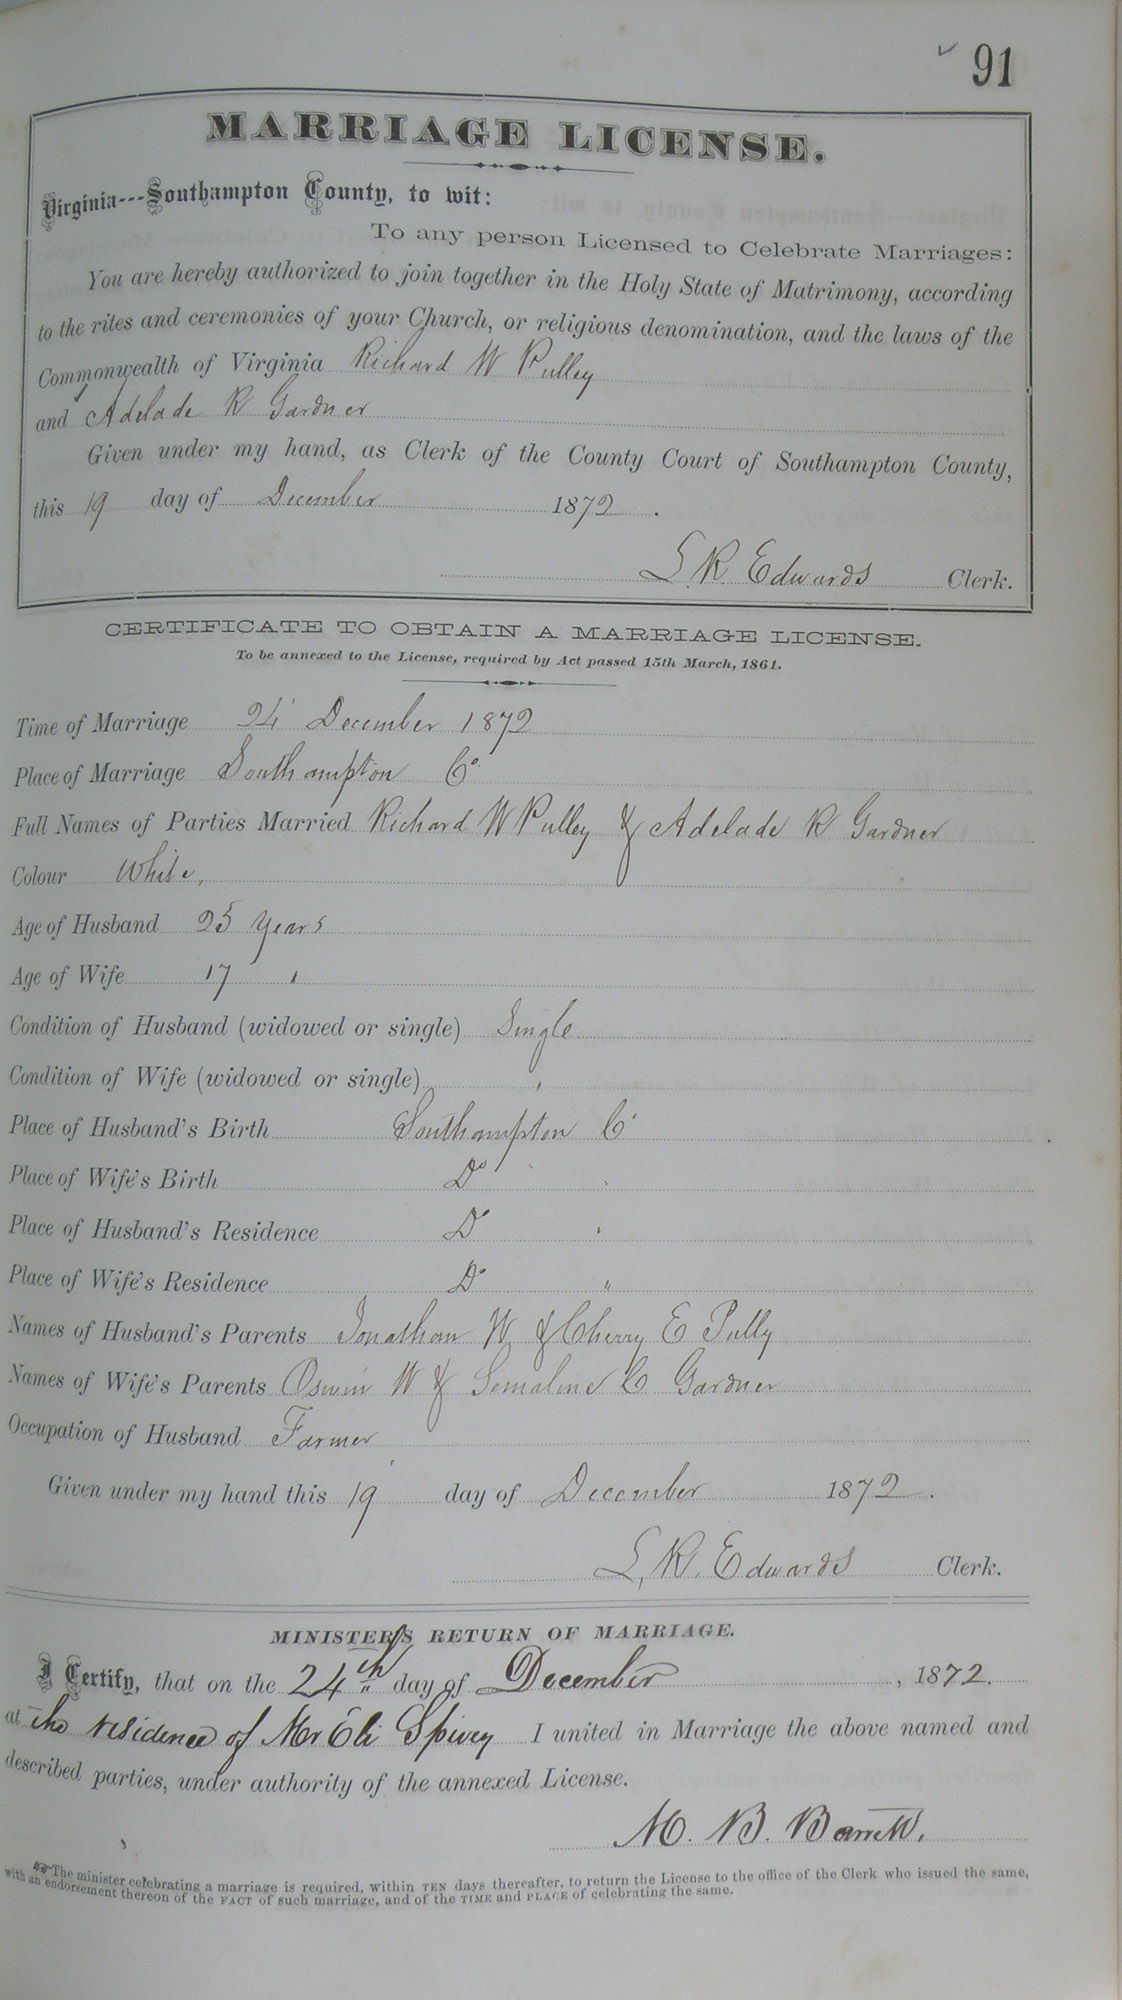 91
MARRIAGE LICENSE.
Virginia---Southampton County, to wit:
To any person Licensed to Celebrate Marriages:
You are hereby authorized to join together in the Holy State of Matrimony, according
to the rites and ceremonies of your Church, or religious denomination, and the laws of the
Commonwealth of Virginia Richard W Pulley
and Adelade R Gardner
Given under my hand, as Clerk of the County Court of Southampton County,
this 19 day of December 1872 .
L R Edwards Clerk.
CERTIFICATE TO OBTAIN A MARRIAGE LICENSE.
To be annexed to the License, required by Act passed 15th March, 1861.
Time of Marriage 24 December 1872
Place of Marriage Southampton Co
Full Names of Parties Married Richard W Pulley & Adelade R Gardner
Colour White,
Age of Husband 25 years
Age of Wife 17 "
Condition of Husband (widowed or single) Single
Condition of Wife (widowed or single) "
Place of Husband's Birth Southampton Co
Place of Wife's Birth Do "
Place of Husband's Residence Do "
Place of Wife's Residence Do "
Names of Husband's Parents Jonathan W & Cherry E Pully
Names of Wife's Parents Oswin W & C Gardner
Occupation of Husband Farmer
Given under my hand this 19 day of December 1872.
L. R. Edwards Clerk.
MINISTER'S RETURN OF MARRIAGE.
I Certify, that on the 24th day of December, 1872.
at the residence of Mr Eli Spivey I united in Marriage the above named and
described parties, under authority of the annexed License.
M. B. Barrett.
The minister celebrating a marriage is required, within TEN days thereafter, to return the License to the office of the Clerk who issued the same,
with an endorsement thereon of the FACT of such marriage, and of the TIME and PLACE of celebrating the same.